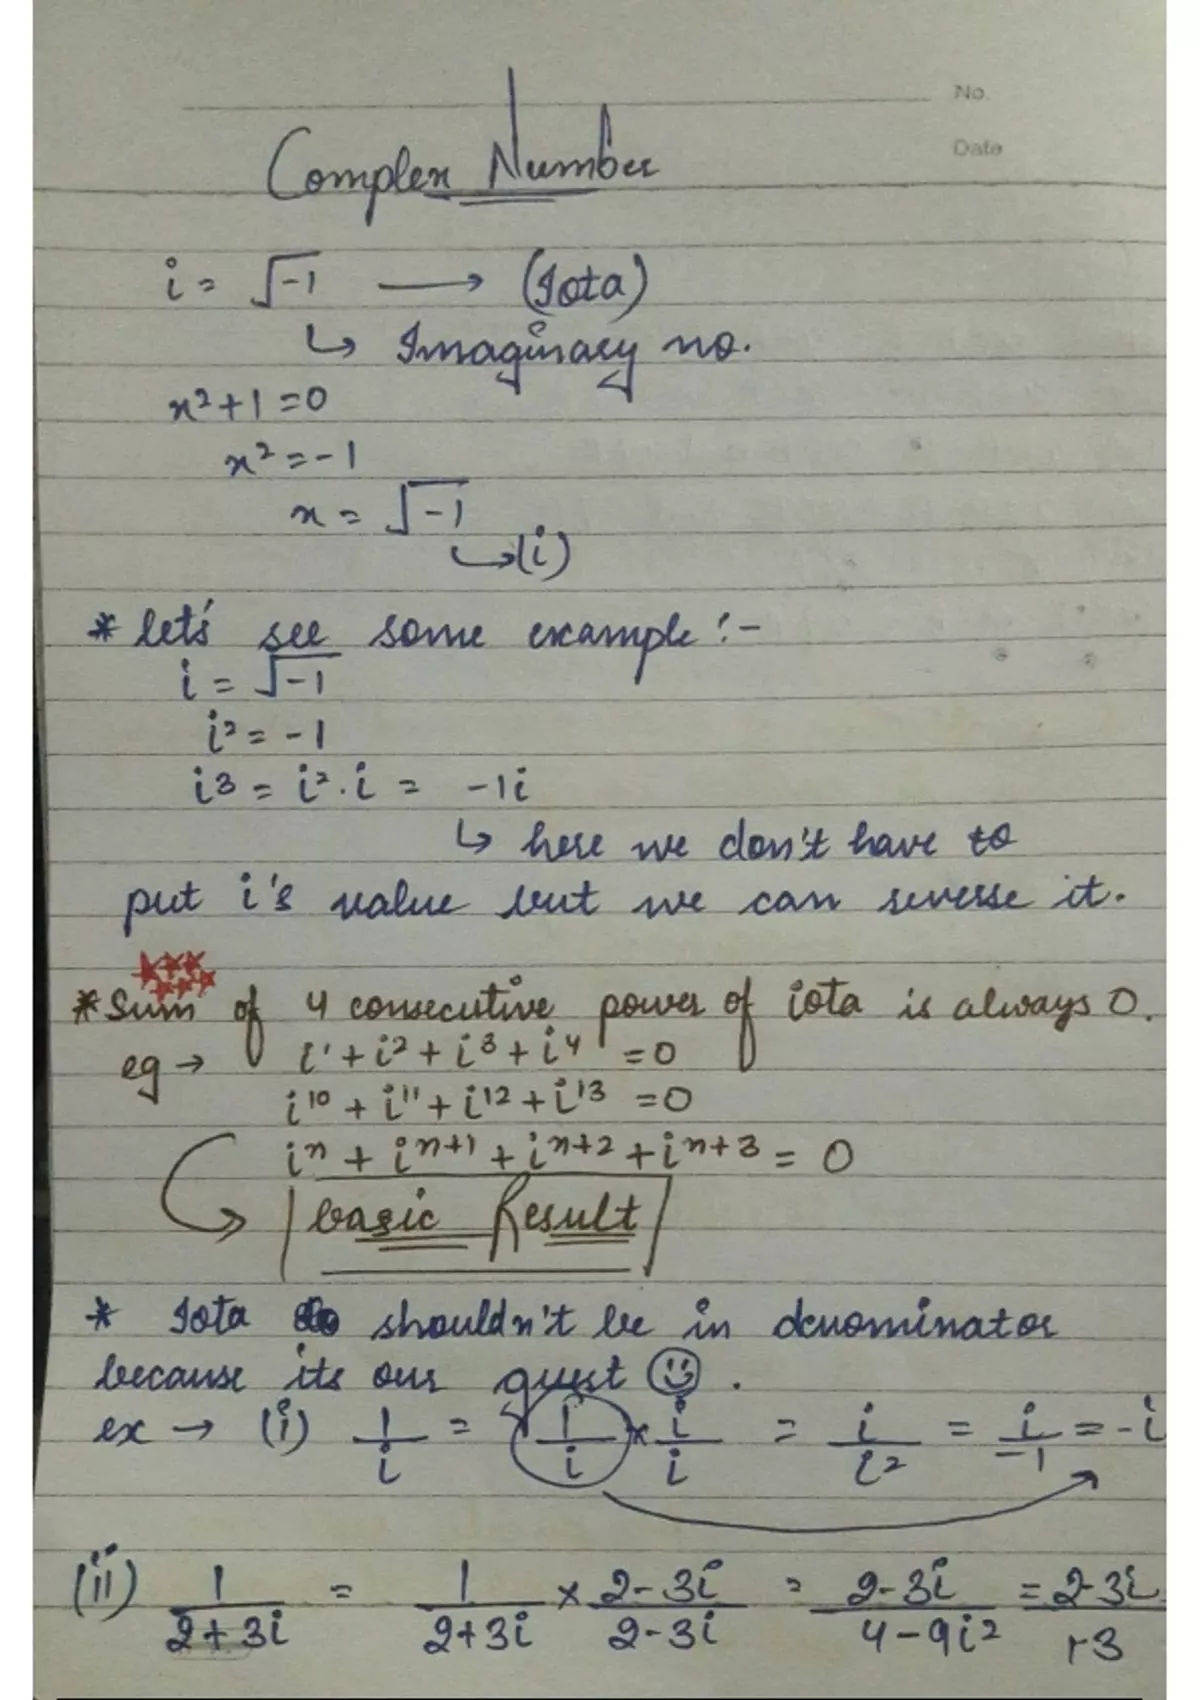 No.
Date
Complex Number
i = √-1 → (Iota)
↳ Imaginary no.
x²+1=0
x²=-1
x = √-1
↳(i)
* let's see some example:-
i = √-1
i² = -1
i³ = i².i = -1i
↳ here we don't have to
put i's value but we can reverse it.
* Sum of 4 consecutive power of iota is always 0.
eg → i¹ + i² + i³ + i⁴ = 0
i¹⁰ + i¹¹ + i¹² + i¹³ = 0
iⁿ + iⁿ⁺¹ + iⁿ⁺² + iⁿ⁺³ = 0
basic Result
* Iota shouldn't be in denominator
because its our guest ☺.
ex → (i) 1/i = 1/i × i/i = i/i² = i/-1 = -i
(ii) 1/2+3i = 1/2+3i × 2-3i/2-3i = 2-3i/4-9i² = 2-3i/13